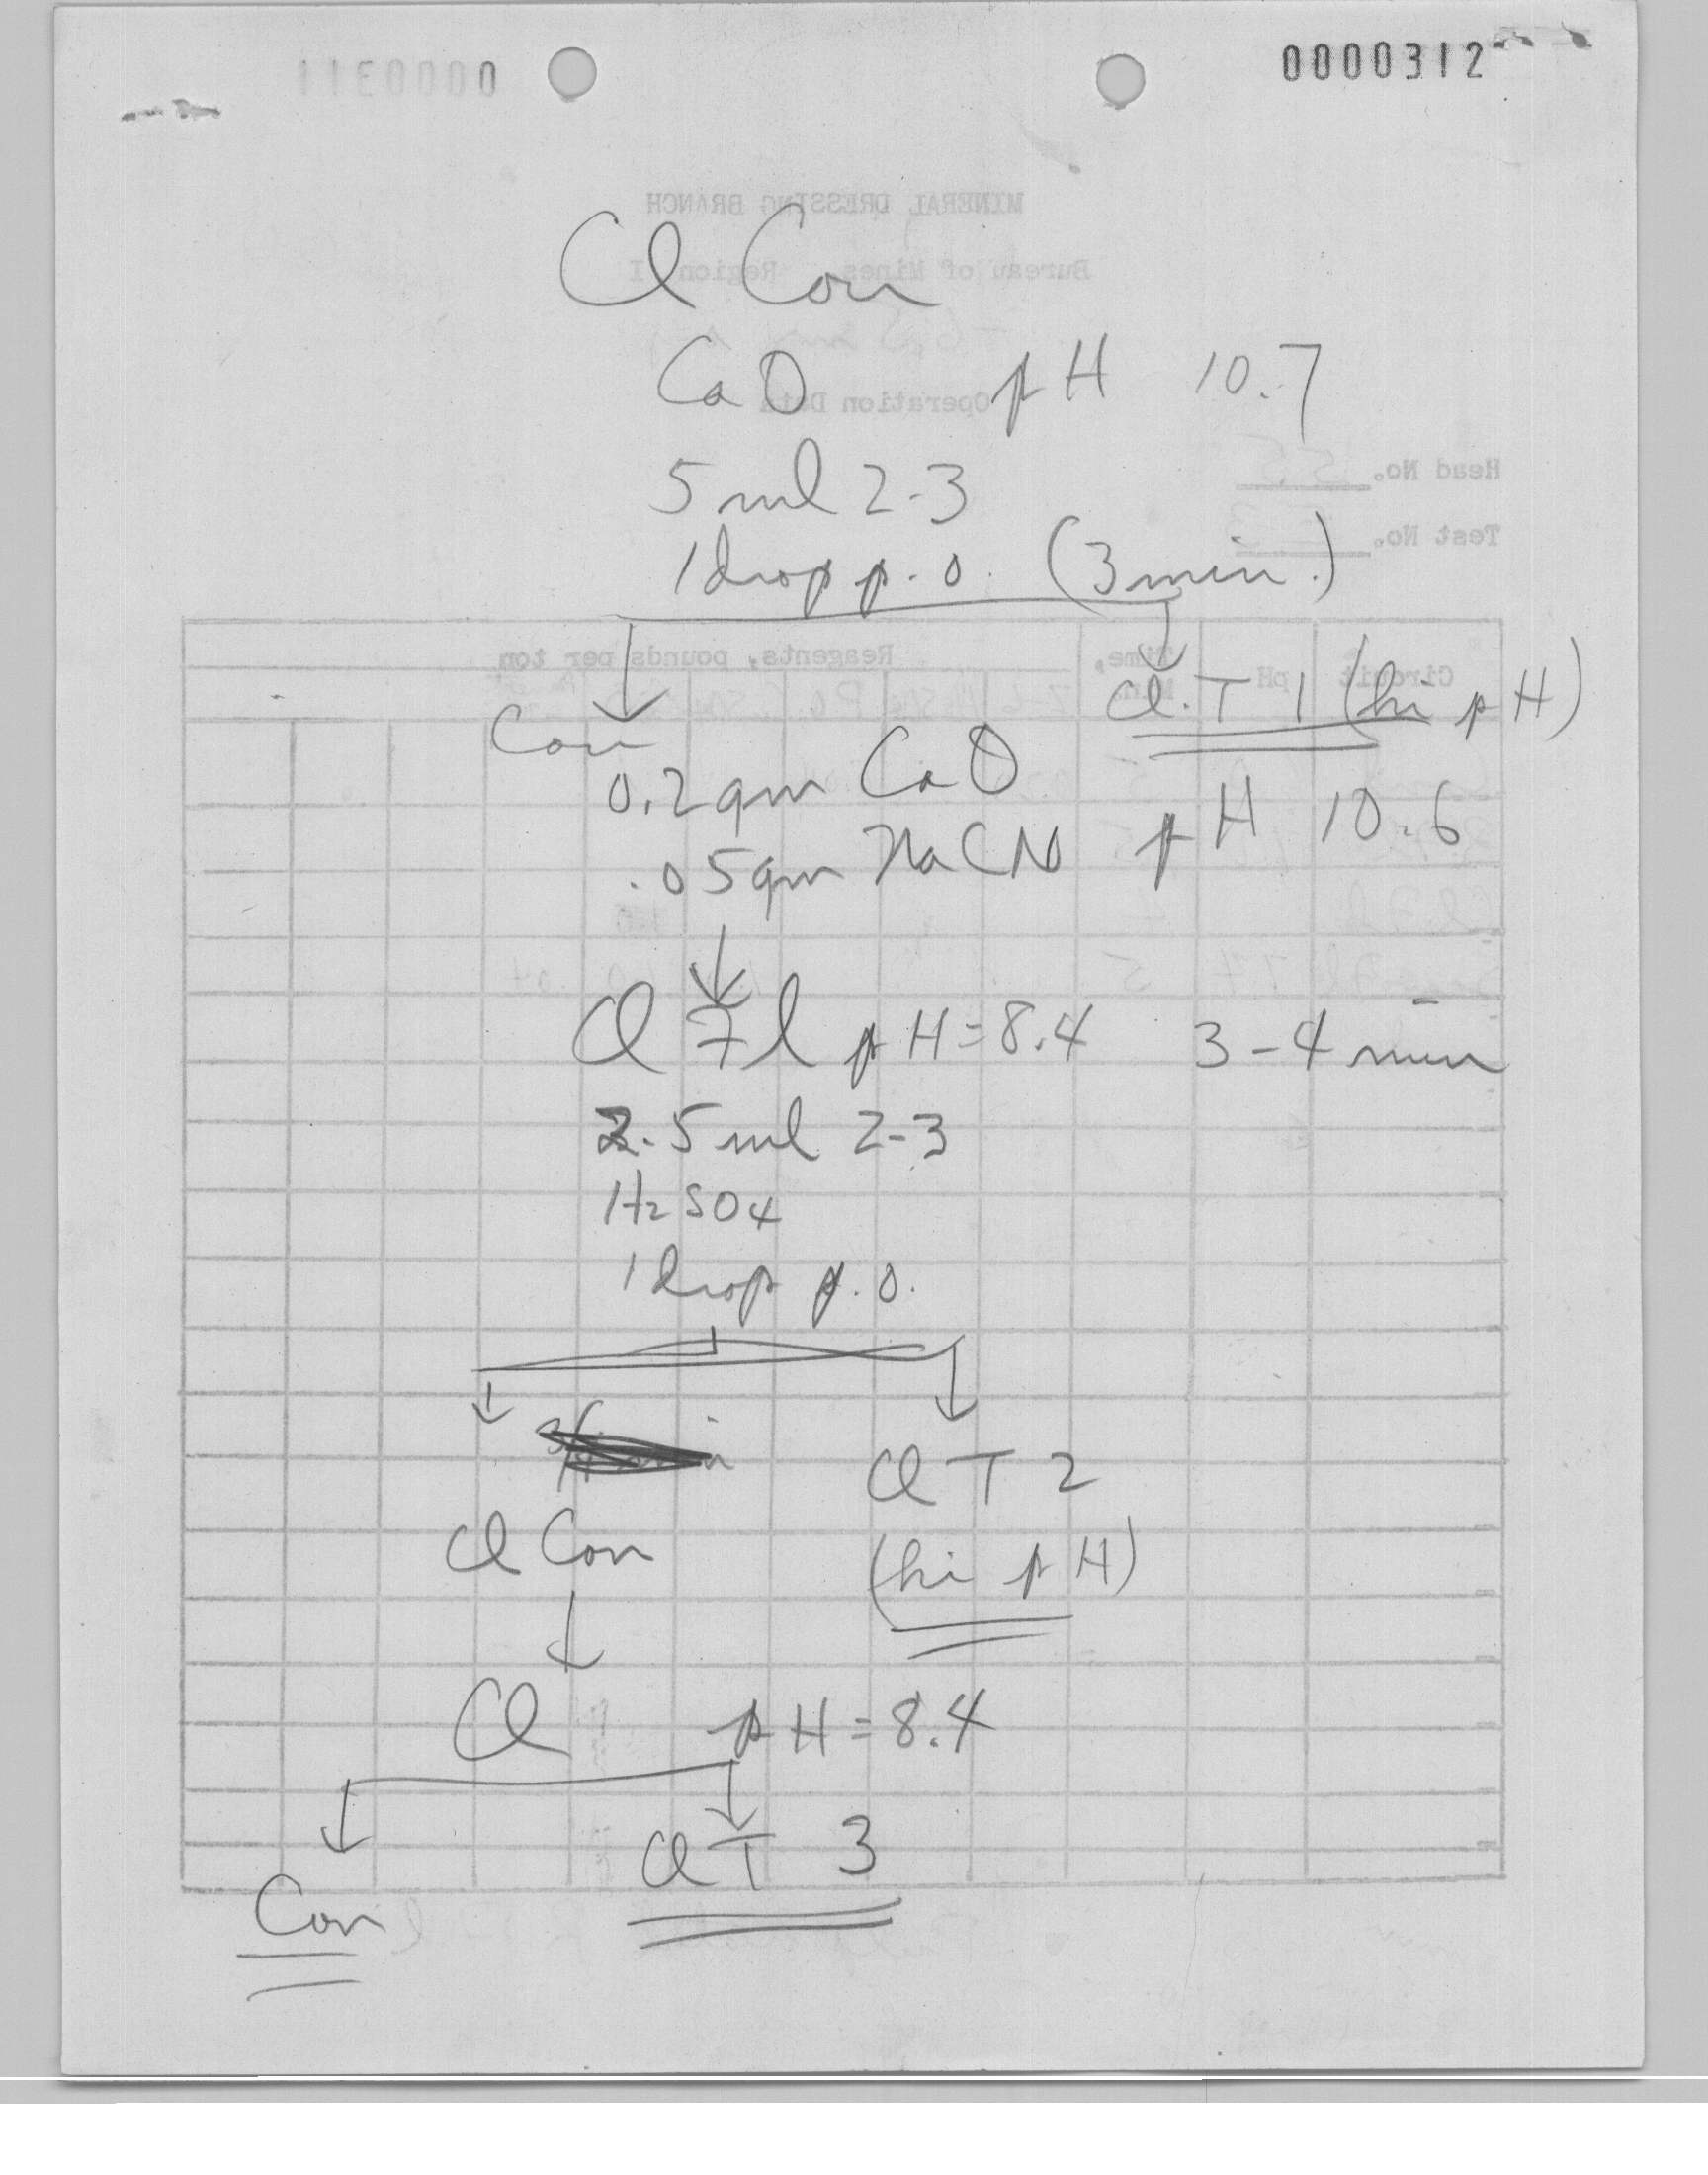 0000312
Cl Con
CaO pH 10.7
5 ml 2-3
1 drop p.o. (3 min.)
Con Cl. T 1 (hi pH)
0.2 gm CaO
.05 gm NaCN pH 10.6
Cl Fl pH = 8.4 3-4 min
2.5 ml 2-3
H2SO4
1 drop p.o.
Cl T 2
Cl Con (hi pH)
Cl pH = 8.4
Cl T 3
Con